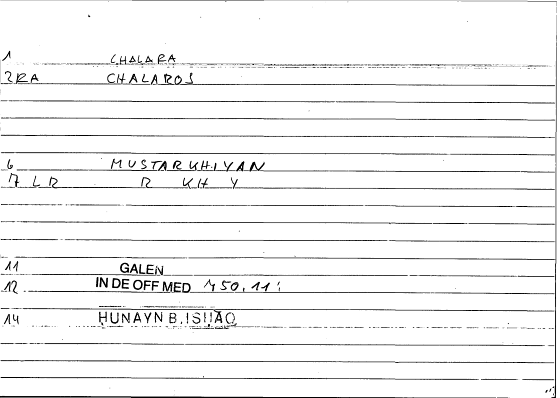 1 CHALARA
2RA CHALAROS
6 MUSTARKHIYAN
7 LR R KH Y
11 GALEN
12 IN DE OFF MED 150,11
14 HUNAYN B. ISḤĀQ